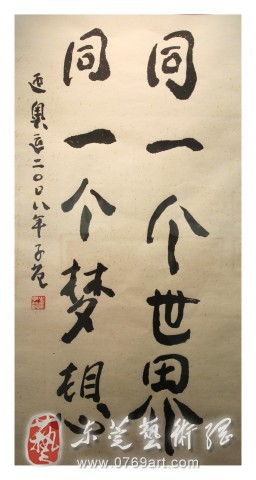 同一个世界
同一个梦想
迎奥运二〇〇八年子龙
艺
东莞艺術网
www.0769art.com